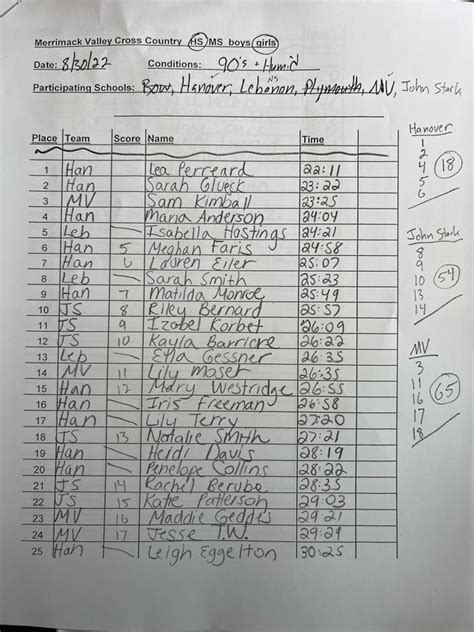 Merrimack Valley Cross Country HS MS boys girls
Date: 8/30/22 Conditions: 90's + Humid
NS
Participating Schools: Bow, Hanover, Lebanon, Plymouth, MV, John Stark
Place Team Score Name Time
1 Han Lea Perreard 22:11
2 Han Sarah Glueck 23:22
3 MV Sam Kimball 23:25
4 Han Mana Anderson 24:04
5 Leb Isabella Hastings 24:21
6 Han 5 Meghan Faris 24:58
7 Han 6 Lauren Eiler 25:07
8 Leb Sarah Smith 25:23
9 Han 7 Matilda Monroe 25:49
10 JS 8 Riley Bernard 25:57
11 JS 9 Izobel Korbet 26:09
12 JS 10 Kayla Barriere 26:22
13 Leb Ella Gessner 26:35
14 MV 11 Lily Moser 26:35
15 Han 12 Mary Westridge 26:55
16 Han Iris Freeman 26:58
17 Han Lily Terry 27:20
18 JS 13 Natalie Smith 27:21
19 Han Heidi Davis 28:19
20 Han Penelope Collins 28:22
21 JS 14 Rachel Berube 28:35
22 JS 15 Katie Patterson 29:03
23 MV 16 Maddie Geddis 29:21
24 MV 17 Jesse T.W. 29:29
25 Han Leigh Eggelton 30:25
Hanover
1
2
4 18
5
6
John Stark
8
9
10 54
13
14
MV
3
11
16 65
17
18